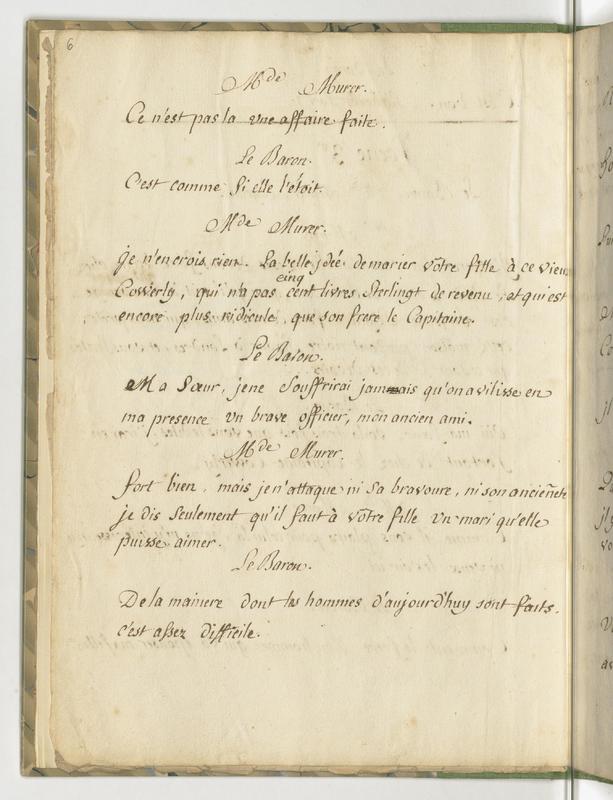 6
Mde Murer.
Ce n'est pas la une affaire faite.
Le Baron.
C'est comme si elle l'étoit.
Mde Murer.
je n'en crois rien. La belle jdée de marier vôtre fille à ce vieu
cinq
Cowerly, qui n'a pas cent livres Sterlingt de revenu, et qui est
encore plus ridicule, que son frere le Capitaine.
Le Baron.
Ma Sœur, je ne Souffrirai jamais qu'on avilisse en
ma presence un brave officier, mon ancien ami.
Mde Murer.
fort bien, mais je n'attaque ni Sa bravoure, ni son ancieñeté
je dis Seulement qu'il faut à vôtre fille un mari qu'elle
puisse aimer.
Le Baron.
De la mainere dont les hommes d'aujourd'huy sont faits.
c'est assez difficile.